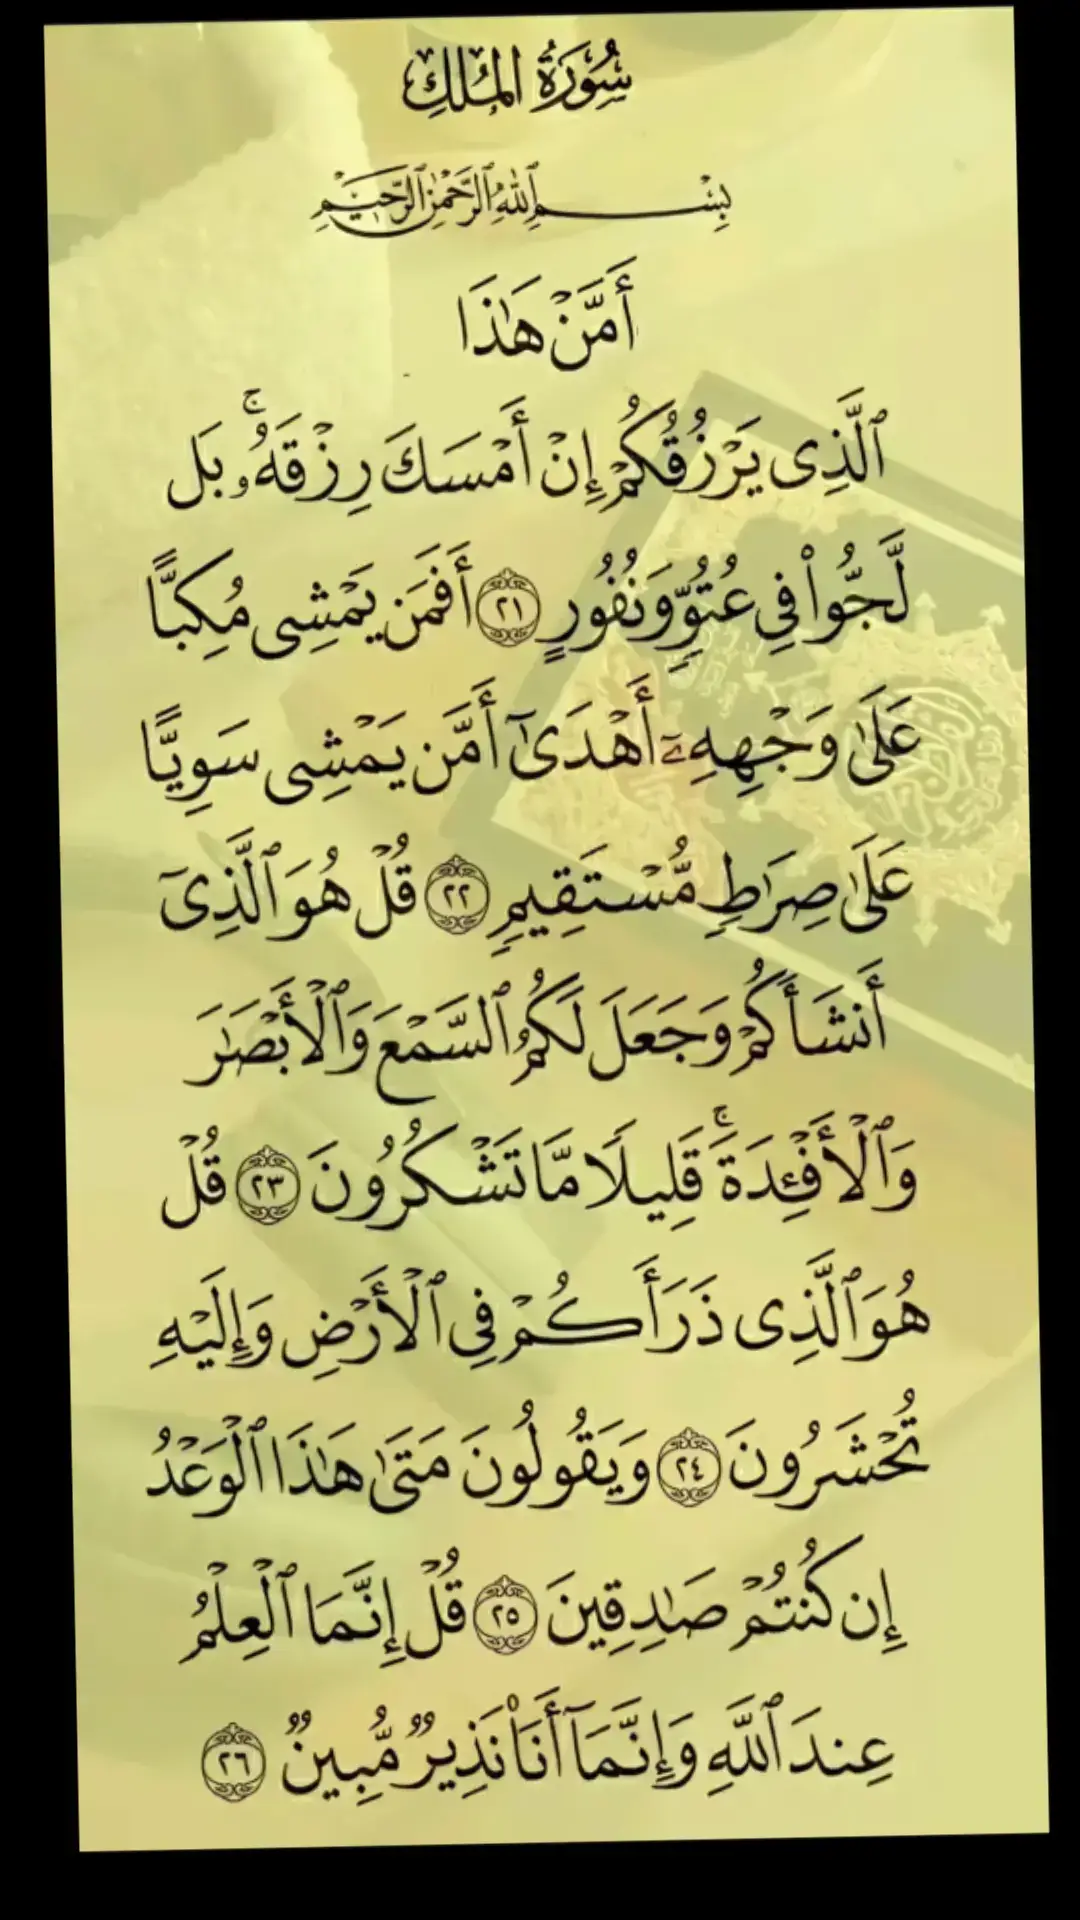 سُورَةُ المُلكِ
بِسْمِ ٱللَّهِ ٱلرَّحْمَٰنِ ٱلرَّحِيمِ
أَمَّنْ هَٰذَا
ٱلَّذِى يَرْزُقُكُمْ إِنْ أَمْسَكَ رِزْقَهُۥ ۚ بَل
لَّجُّوا۟ فِى عُتُوٍّ وَنُفُورٍ ٢١ أَفَمَن يَمْشِى مُكِبًّا
عَلَىٰ وَجْهِهِۦٓ أَهْدَىٰٓ أَمَّن يَمْشِى سَوِيًّا
عَلَىٰ صِرَٰطٍ مُّسْتَقِيمٍ ٢٢ قُلْ هُوَ ٱلَّذِىٓ
أَنشَأَكُمْ وَجَعَلَ لَكُمُ ٱلسَّمْعَ وَٱلْأَبْصَٰرَ
وَٱلْأَفْـِٔدَةَ ۚ قَلِيلًا مَّا تَشْكُرُونَ ٢٣ قُلْ
هُوَ ٱلَّذِى ذَرَأَكُمْ فِى ٱلْأَرْضِ وَإِلَيْهِ
تُحْشَرُونَ ٢٤ وَيَقُولُونَ مَتَىٰ هَٰذَا ٱلْوَعْدُ
إِن كُنتُمْ صَٰدِقِينَ ٢٥ قُلْ إِنَّمَا ٱلْعِلْمُ
عِندَ ٱللَّهِ وَإِنَّمَآ أَنَا۠ نَذِيرٌ مُّبِينٌ ٢٦